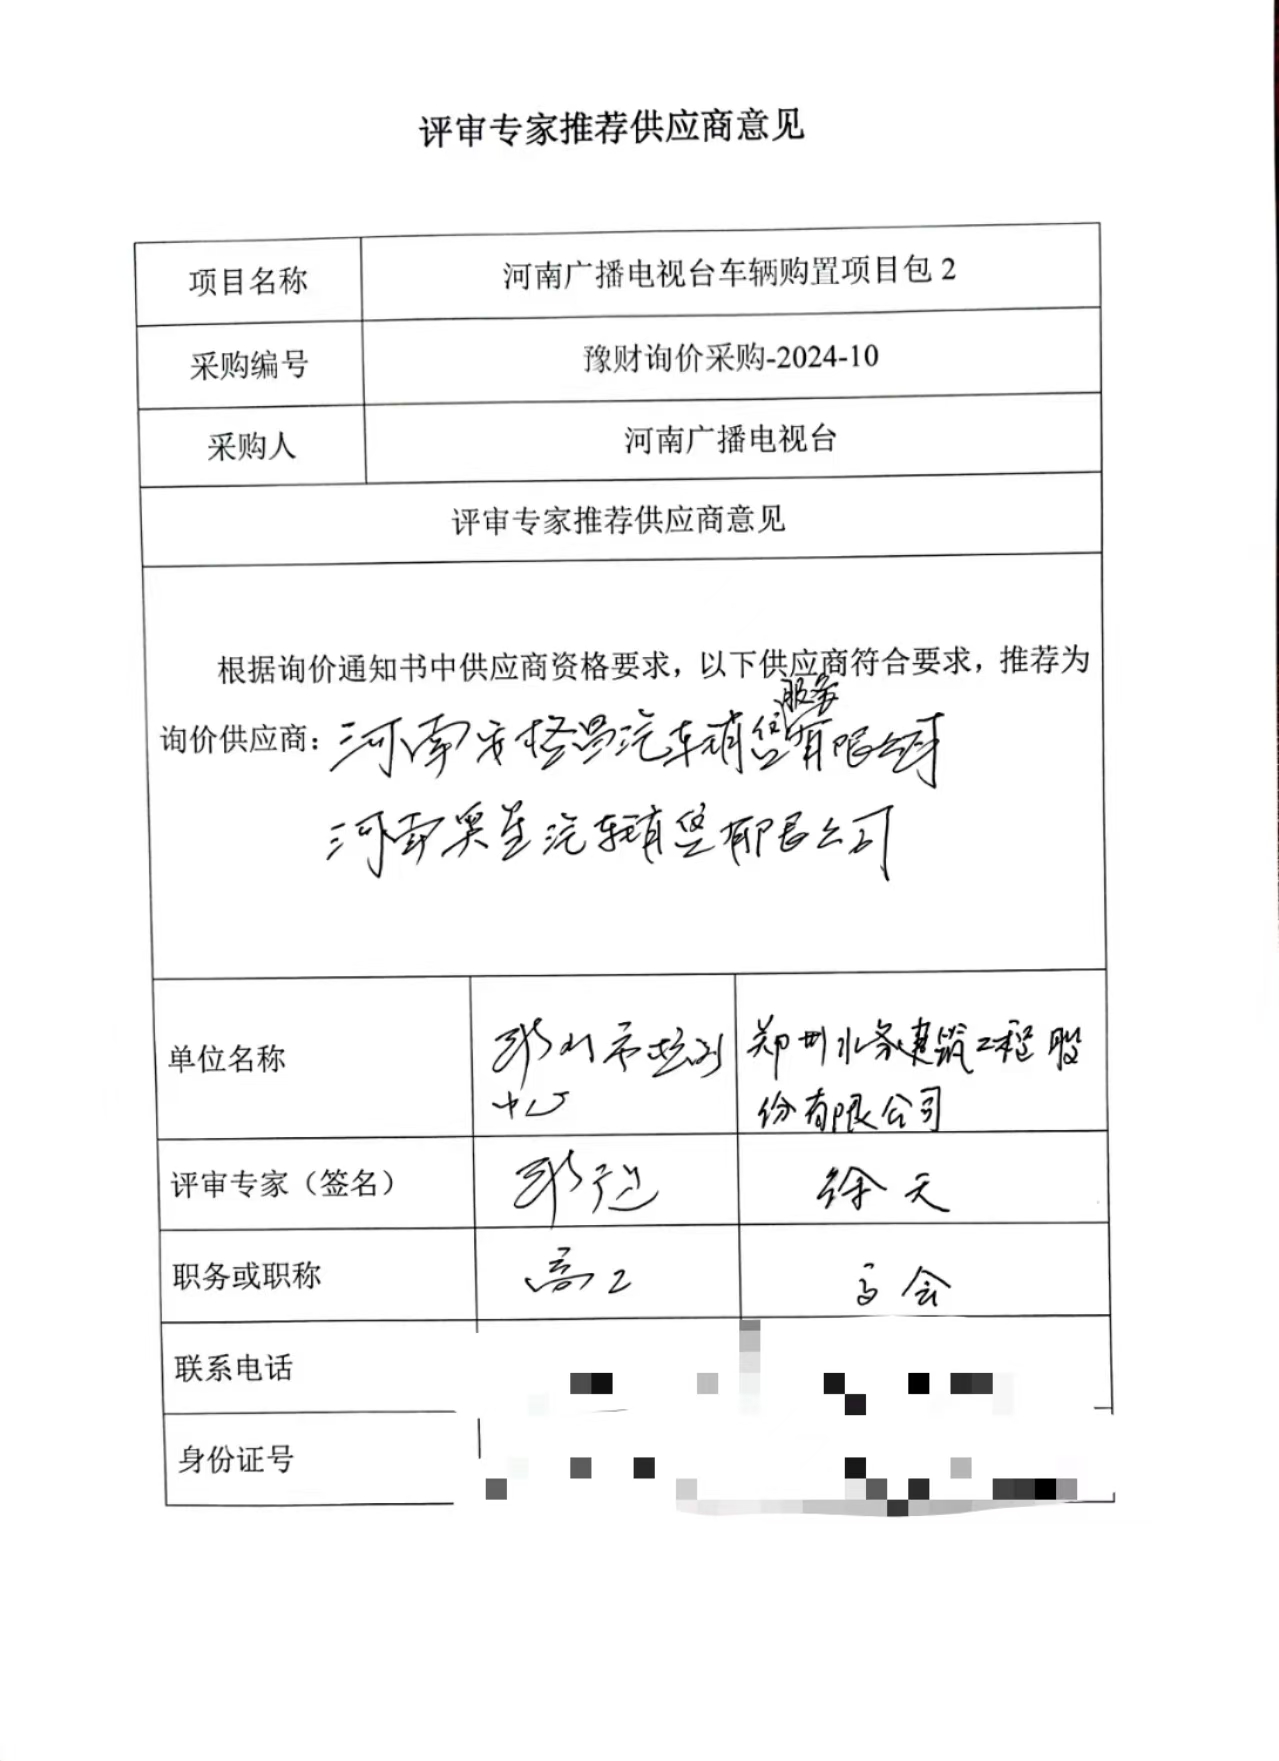 评审专家推荐供应商意见
项目名称 河南广播电视台车辆购置项目包 2
采购编号 豫财询价采购-2024-10
采购人 河南广播电视台
评审专家推荐供应商意见
根据询价通知书中供应商资格要求，以下供应商符合要求，推荐为
服务
询价供应商：河南安格昌汽车销售有限公司
河南奥星汽车销售有限公司
单位名称
中心
郑州 建筑工程股
份有限公司
评审专家（签名） 徐天
职务或职称 高工 高会
联系电话
身份证号